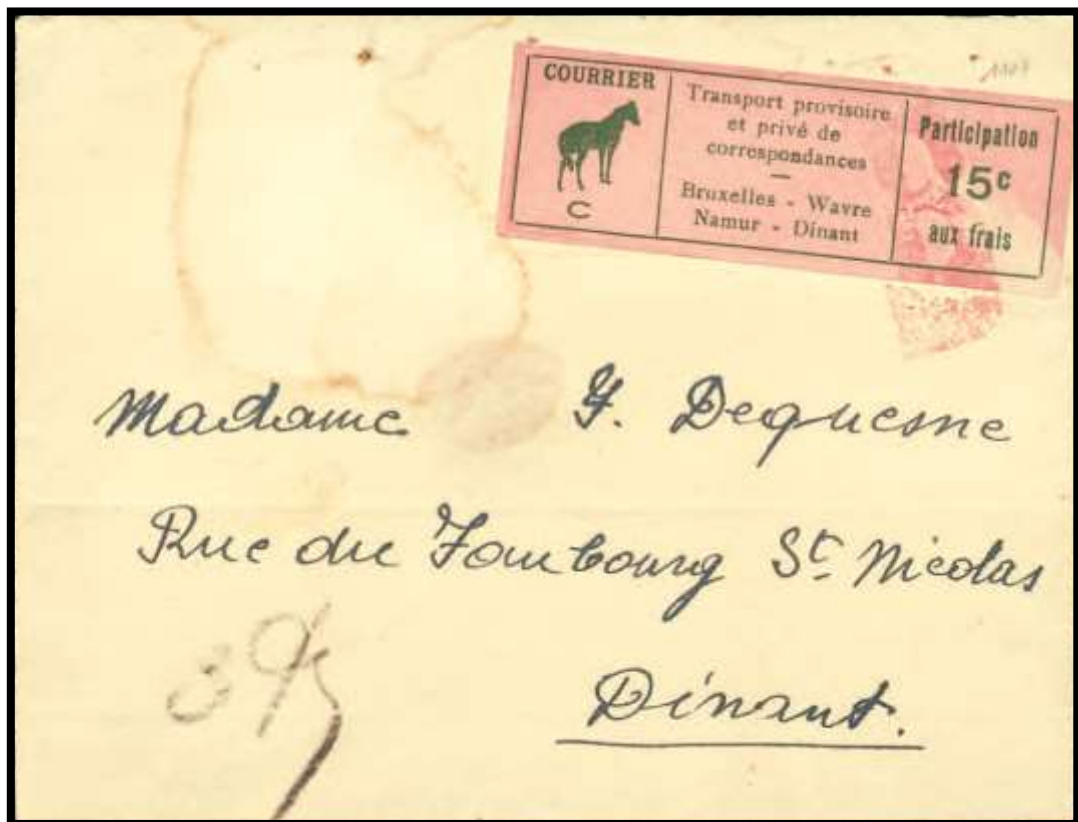 COURRIER
C
Transport provisoire
et privé de
correspondances
Bruxelles - Wavre
Namur - Dinant
Participation
15c
aux frais
Madame Y. Dequesne
Rue du Faubourg St. Nicolas
Dinant.